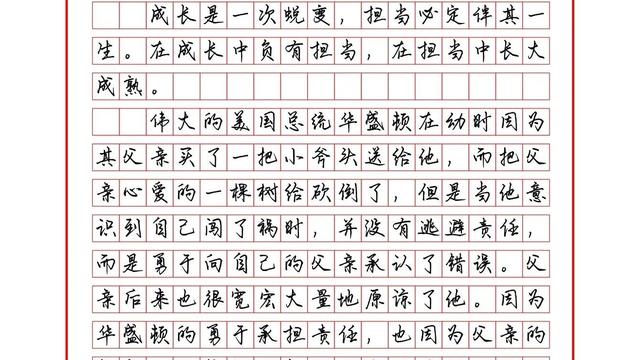 成长是一次蜕变，担当必定伴其一
生。在成长中负有担当，在担当中长大
成熟。
伟大的美国总统华盛顿在幼时因为
其父亲买了一把小斧头送给他，而把父
亲心爱的一棵树给砍倒了，但是当他意
识到自己闯了祸时，并没有逃避责任，
而是勇于向自己的父亲承认了错误。父
亲后来也很宽宏大量地原谅了他。因为
华盛顿的勇于承担责任，也因为父亲的